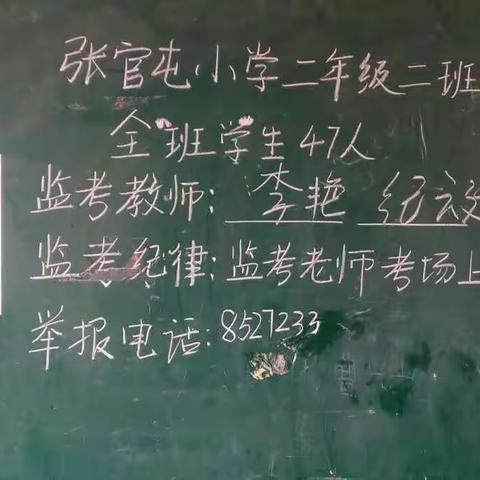 张官屯小学二年级二班
全班学生47人
监考教师: 李艳
监考纪律: 监考老师考场上
举报电话: 8527233